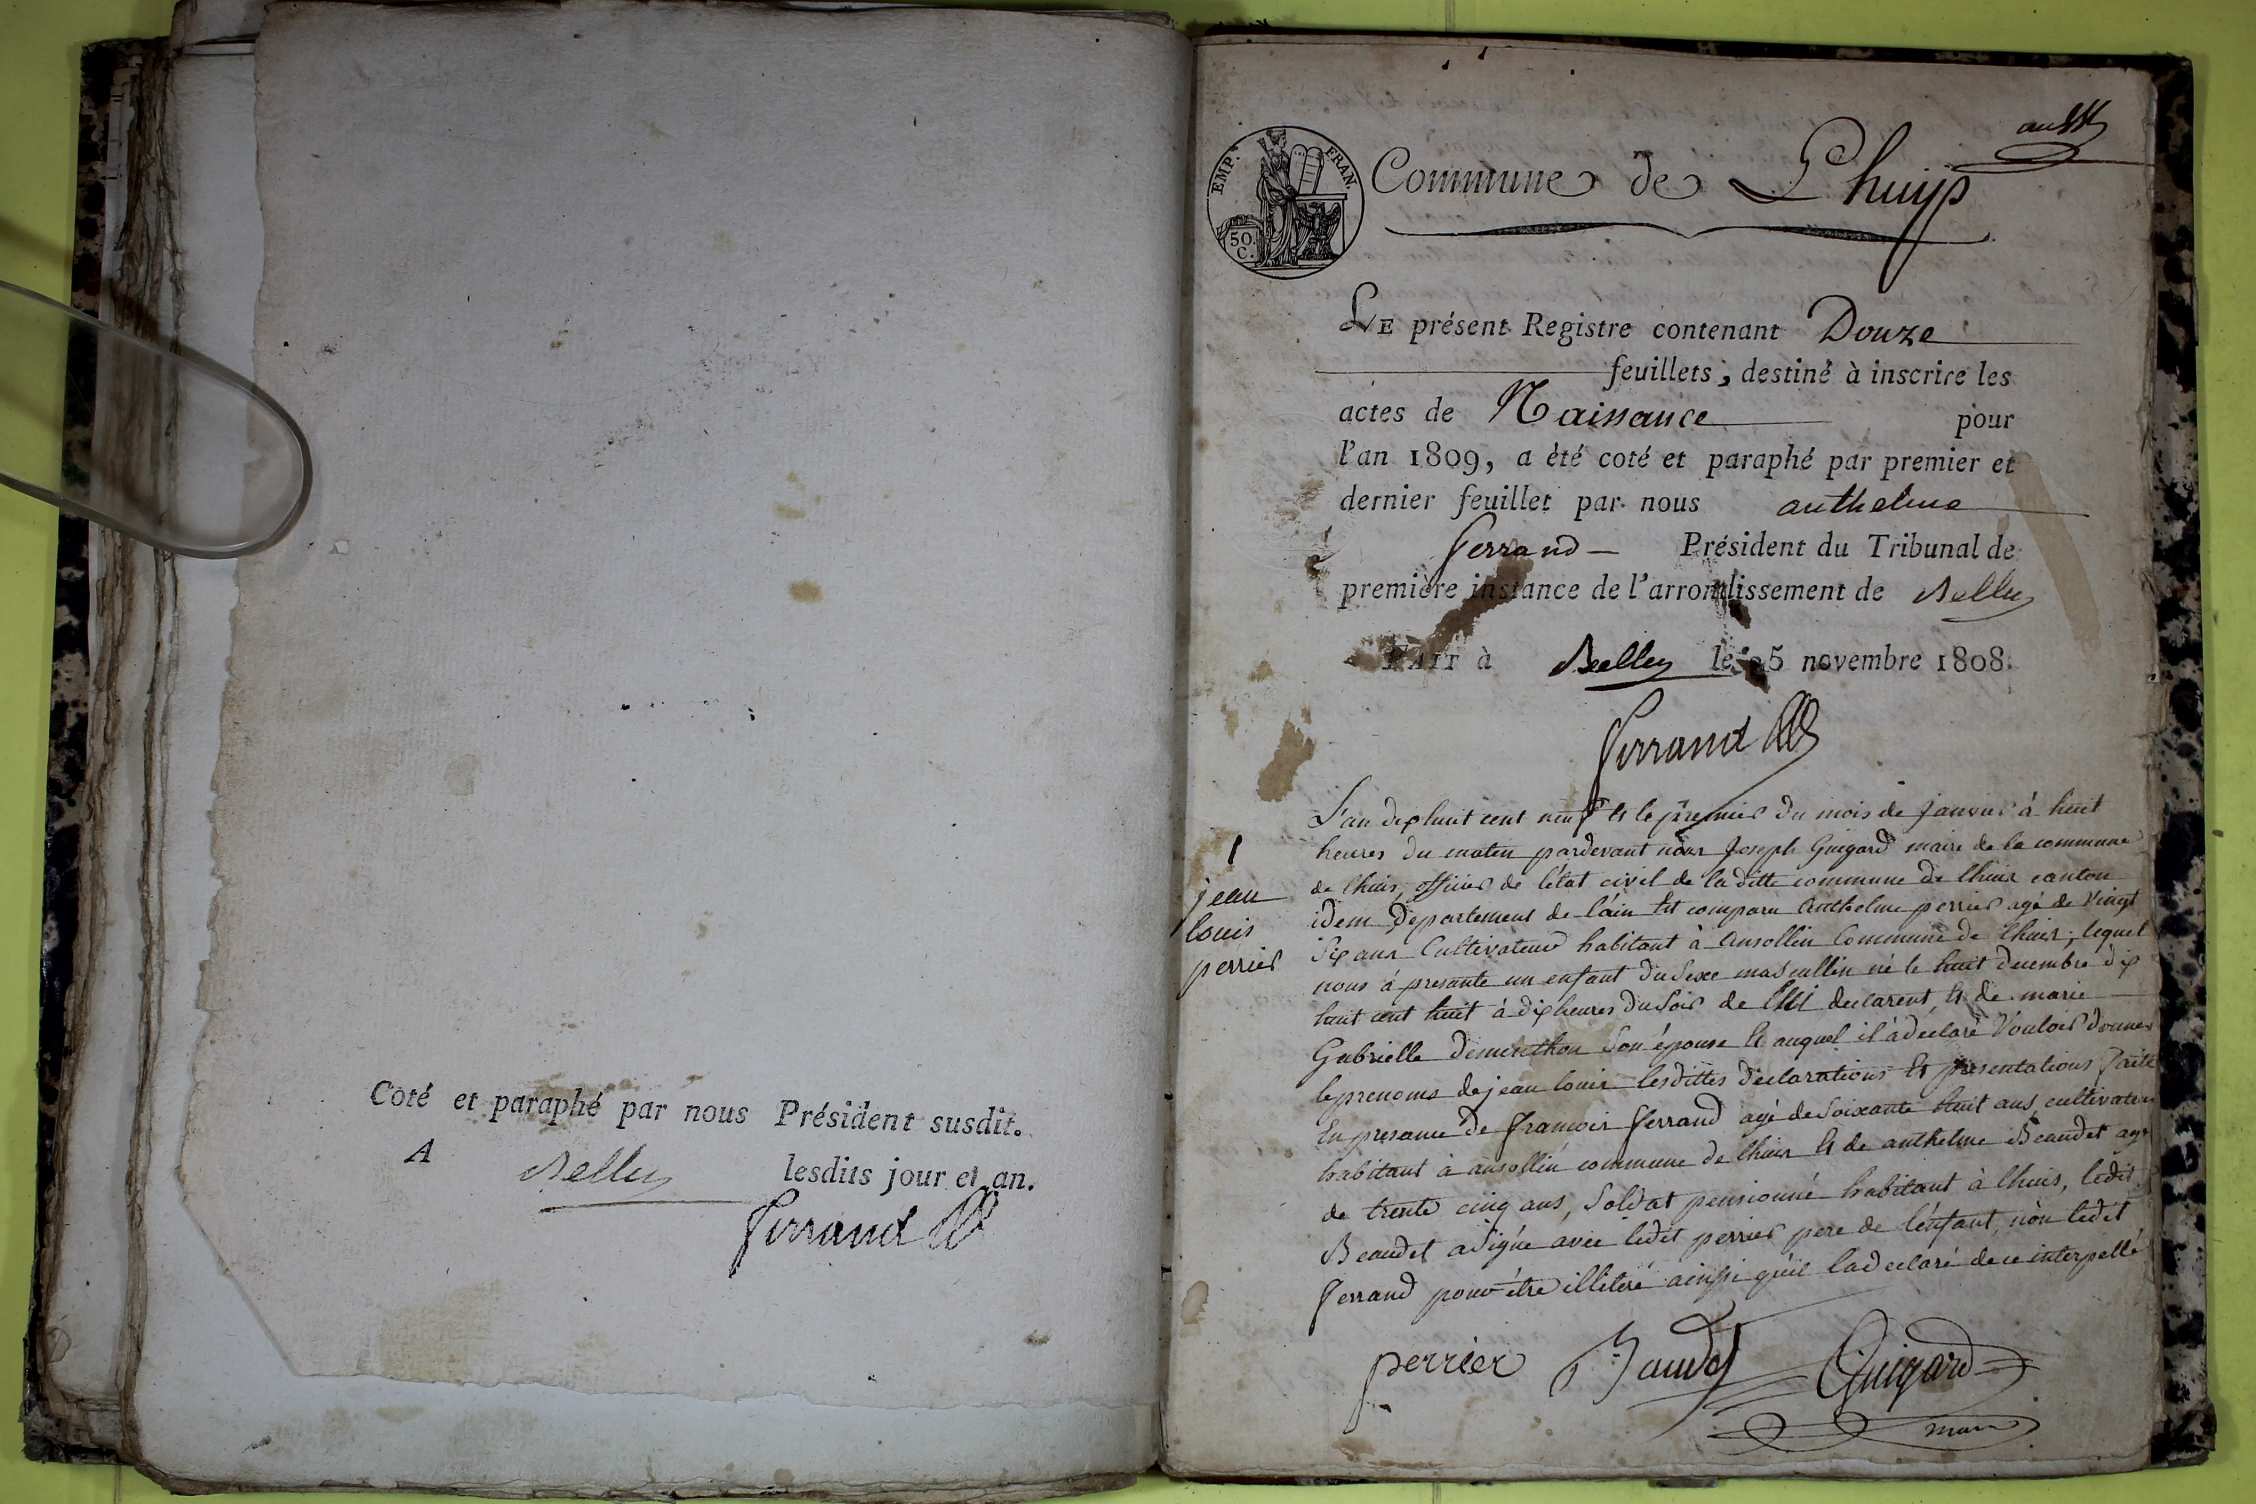 Coté et paraphé par nous Président susdit.
A Belley lesdits jour et an.
Ferrand
EMP. FRAN.
50 C.
Commune de Lhuys
LE présent Registre contenant Douze
feuillets, destiné à inscrire les
actes de Naissance pour
l'an 1809, a été coté et paraphé par premier et
dernier feuillet par nous anthelme
ferrand Président du Tribunal de
première instance de l'arrondissement de Belley
FAIT à Belley le 25 novembre 1808.
ferrand
1
jean
louis
perrier
L'an dix huit cent neuf et le premier du mois de janvier à huit
heures du matin pardevant nous Joseph Guigard maire de la commune
de lhuis, officier de l'état civil de la ditte commune de lhuis canton
idem département de l'ain est comparu Anthelme perrier agé de Vingt
Six ans Cultivateur habitant à Ansollin Commune de lhuis, lequel
nous à presanté un enfant du Sexe masculin né le huit decembre dix
huit cent huit à dix heures du Soir de lui declarent, et de marie
Gabrielle dementhon Son épouse et auquel il à declaré Vouloir donner
le prenoms de jean louis lesdittes déclarations et presentations faite
En presance de françois ferrand agé de Soixante huit ans cultivateur
habitant à ansollin commune de lhuis et de anthelme Beaudet agé
de trente cinq ans, Soldat pensionné habitant à lhuis, ledit
Beaudet a Signé avec ledit perrier pere de l'enfant, non ledit
ferrand pour être illiteré ainsi qu'il la declaré de ce interpellé
perrier Baudet Guigard
maire